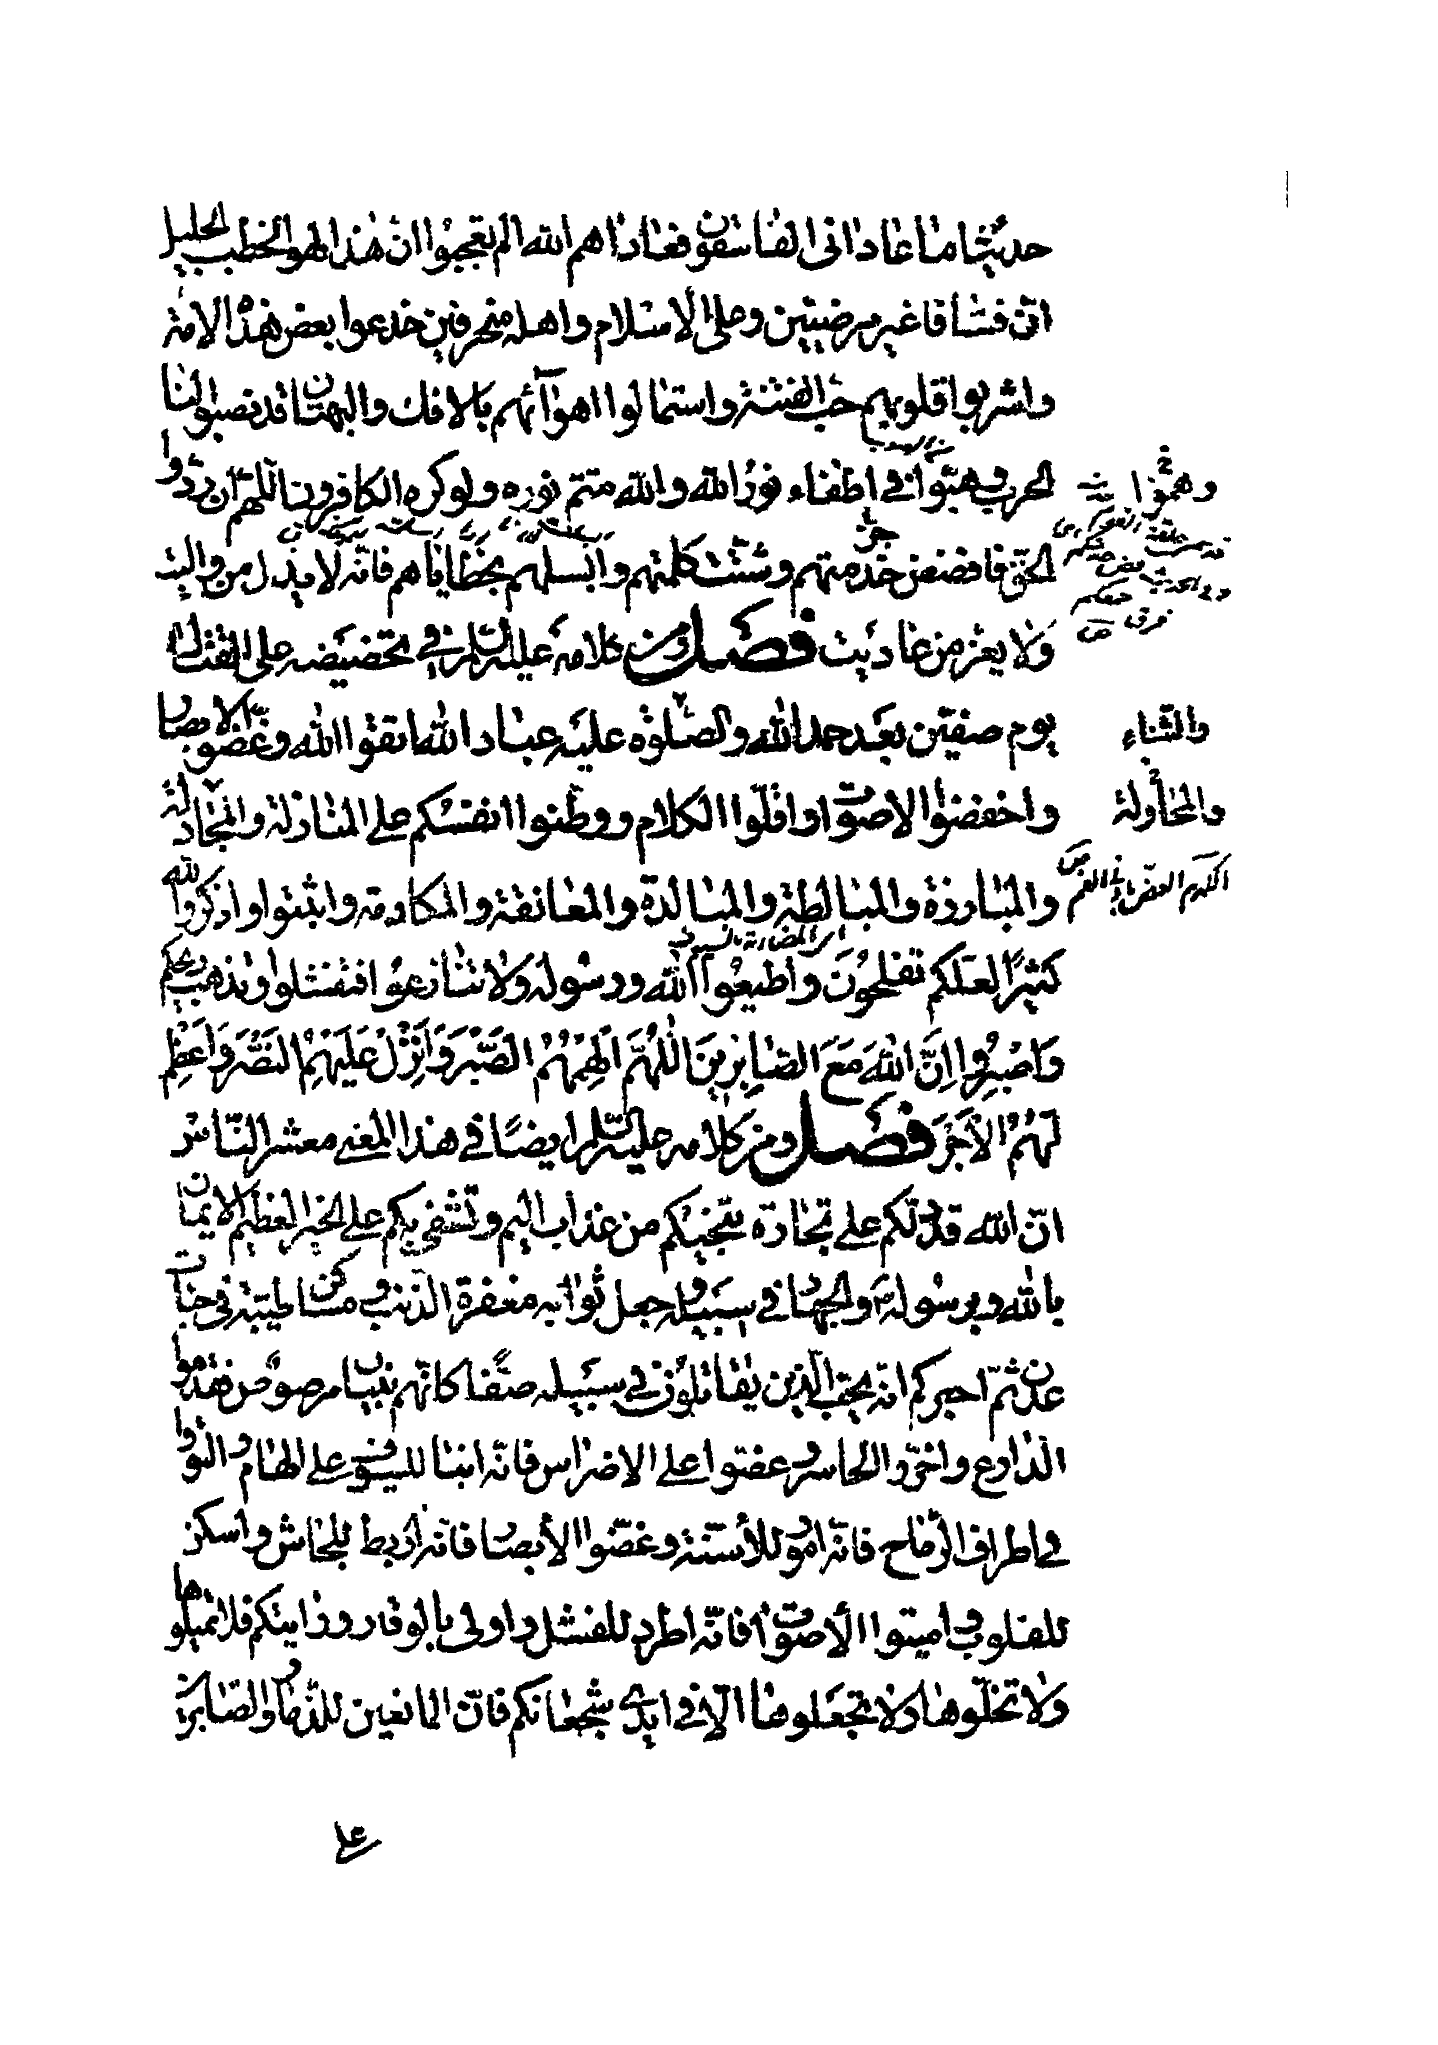 حديثا ما عاداني الفاسقون فعاداهم الله الم تعجبوا ان هذا لهو الخطب الجليل
ان فساقا غير مرضيين وعلى الاسلام واهله متحرفين خدعوا بعض هذه الامة
واشربوا قلوبهم حب الفتنة واستمالوا اهوآئهم بالافك والبهتان قد نصبوا لنا
الحرب وهبوا في اطفاء نور الله والله متم نوره ولو كره الكافرون اللهم ان ردوا
الحق فافضض خدمتهم وشتت كلمتهم وابسلهم بخطاياهم فانه لا يذل من واليت
ولا يعز من عاديت فصل ومن كلامه عليه السلام في تحضيضه على القتال
يوم صفين بعد حمد الله والصلوة عليه عباد الله اتقوا الله وغضوا الابصار
واخفضوا الاصوات واقلوا الكلام ووطنوا انفسكم على المنازلة والمجادلة
والمبارزة والمبالطة والمبالدة والمعانقة والمكادمة واثبتوا واذكروا الله
كثيرًا لعلكم تفلحون واطيعوا الله ورسوله ولا تنازعوا فتفشلوا وتذهب ريحكم
وَاصْبِرُوا اِنَّ اللهَ مَعَ الصَّابِرِينَ اللّٰهُمَّ اَلْهِمْهُمُ الصَّبْرَ وَاَنْزِلْ عَلَيْهِمُ النَّصْرَ وَاَعْظِمْ
لَهُمُ الْاَجْرَ فصل ومن كلامه عليه السلام ايضًا في هذا المعنى معشر الناس
ان الله قد دلكم على تجارة تنجيكم من عذاب اليم وتشفي بكم على الخير العظيم الايمان
بالله وبرسوله والجهاد في سبيله وجعل ثوابه مغفرة الذنب ومساكن طيبة في جنات
عدن ثم اخبركم انه يحب الذين يقاتلون في سبيله صفًا كانهم بنيان مرصوص فقدموا
الدارع واخروا الحاسر وعضوا على الاضراس فانه انبا للسيوف على الهام والتووا
في اطراف الرماح فانه امور للأسنة وغضوا الأبصار فانه اربط للجاش واسكن
للقلوب واميتوا الأصوات فانه اطرد للفشل واولى بالوقار ورايتكم فلا تميلوها
ولا تخلوها ولا تجعلوها الا في ايدي شجعانكم فان المانعين للذمار والصابرين
على
وهموا
والثناء
والمحاولة